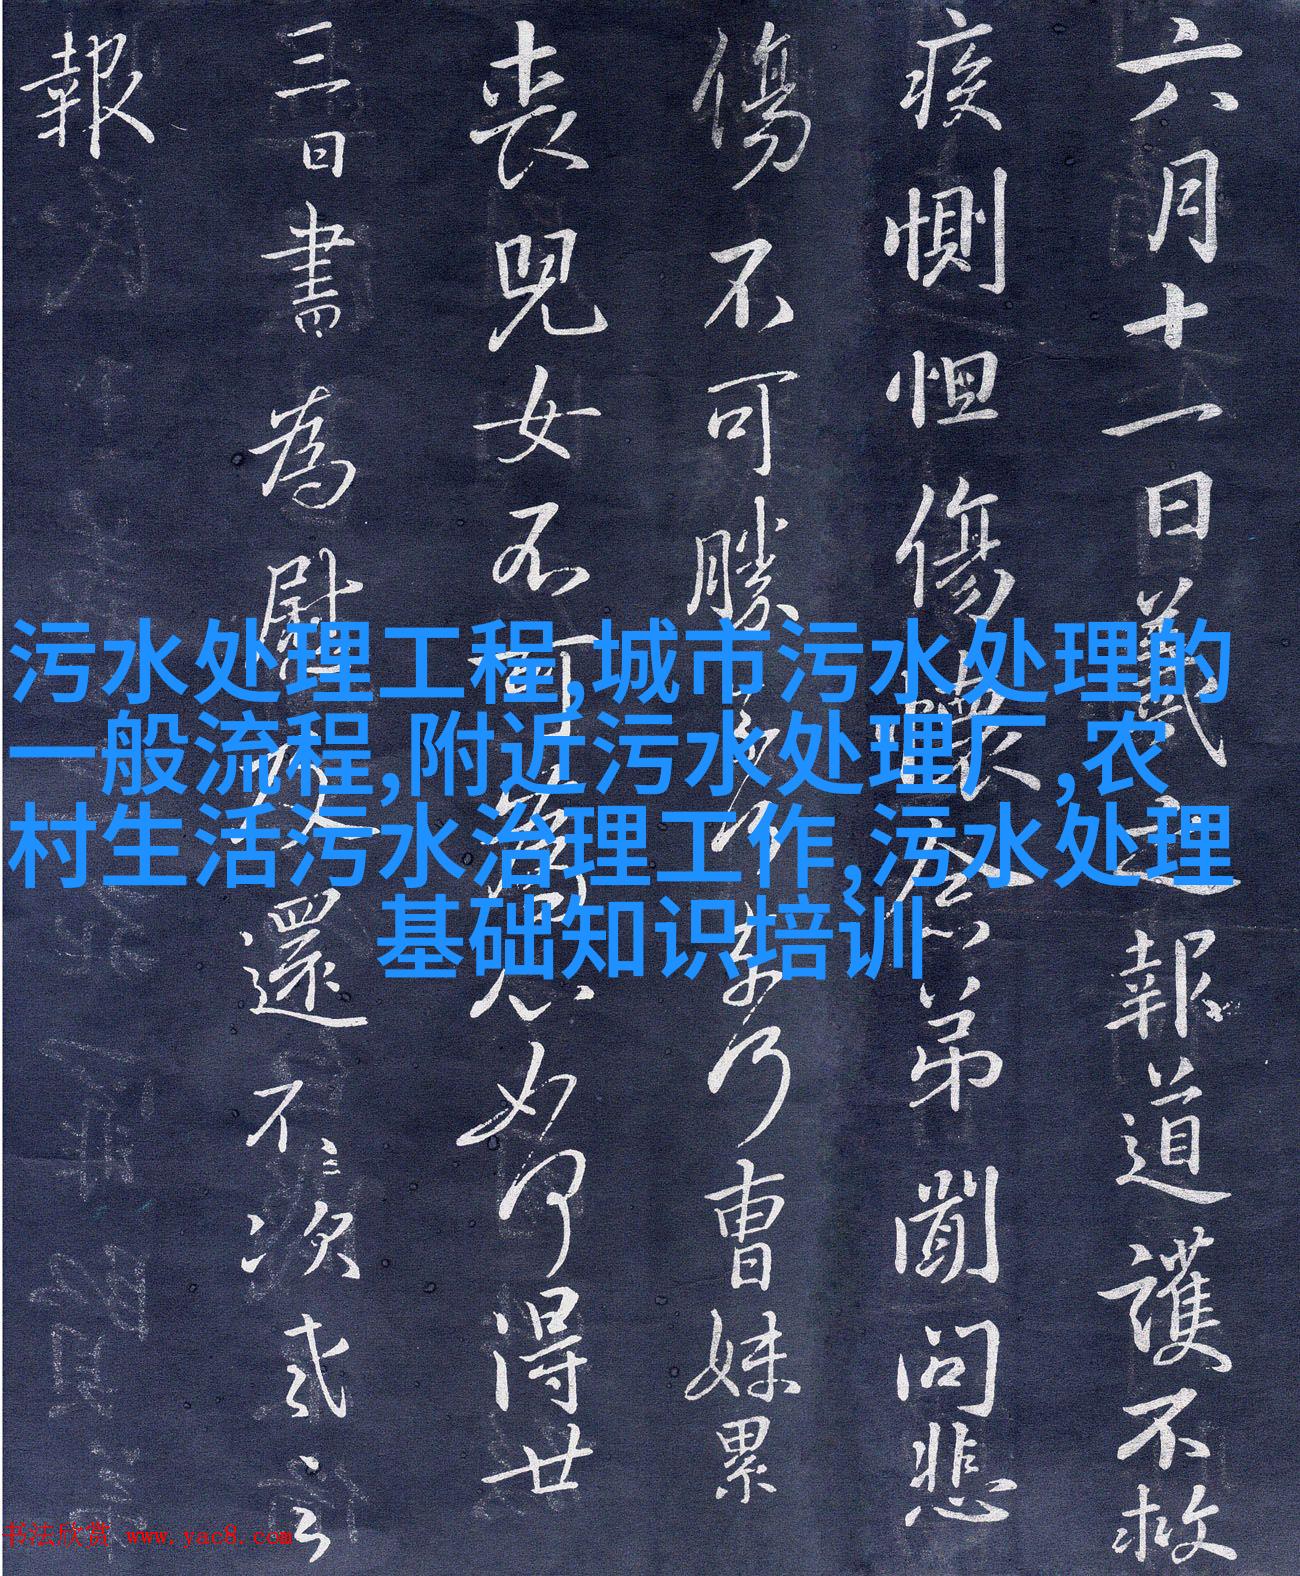 六月十一日羲之報道護不救
疾惻怛傷懷念弟聞問悲
傷不可勝乃曹妹累
喪兒女不可心如何得廿
三日書為慰還不次彧云
報
污水处理工程,城市污水处理的
一般流程,附近污水处理厂,农
村生活污水治理工作,污水处理
基础知识培训
书法欣赏 www.yac8.com